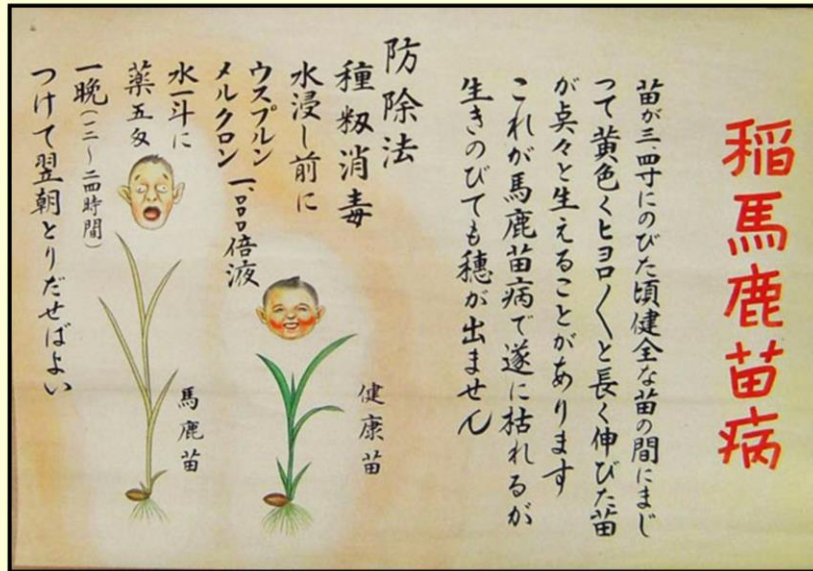 稲馬鹿苗病
苗が三、四寸にのびた頃健全な苗の間にまじ
つて黄色くヒヨロ〳〵と長く伸びた苗
が点々と生えることがあります
これが馬鹿苗病で遂に枯れるが
生きのびても穂が出ません
健康苗
防除法
種籾消毒
水浸し前に
ウスプルン
メルクロン
一、〇〇〇倍液
水一斗に
薬五匁
馬鹿苗
一晩(一二〜二四時間)
つけて翌朝とりだせばよい